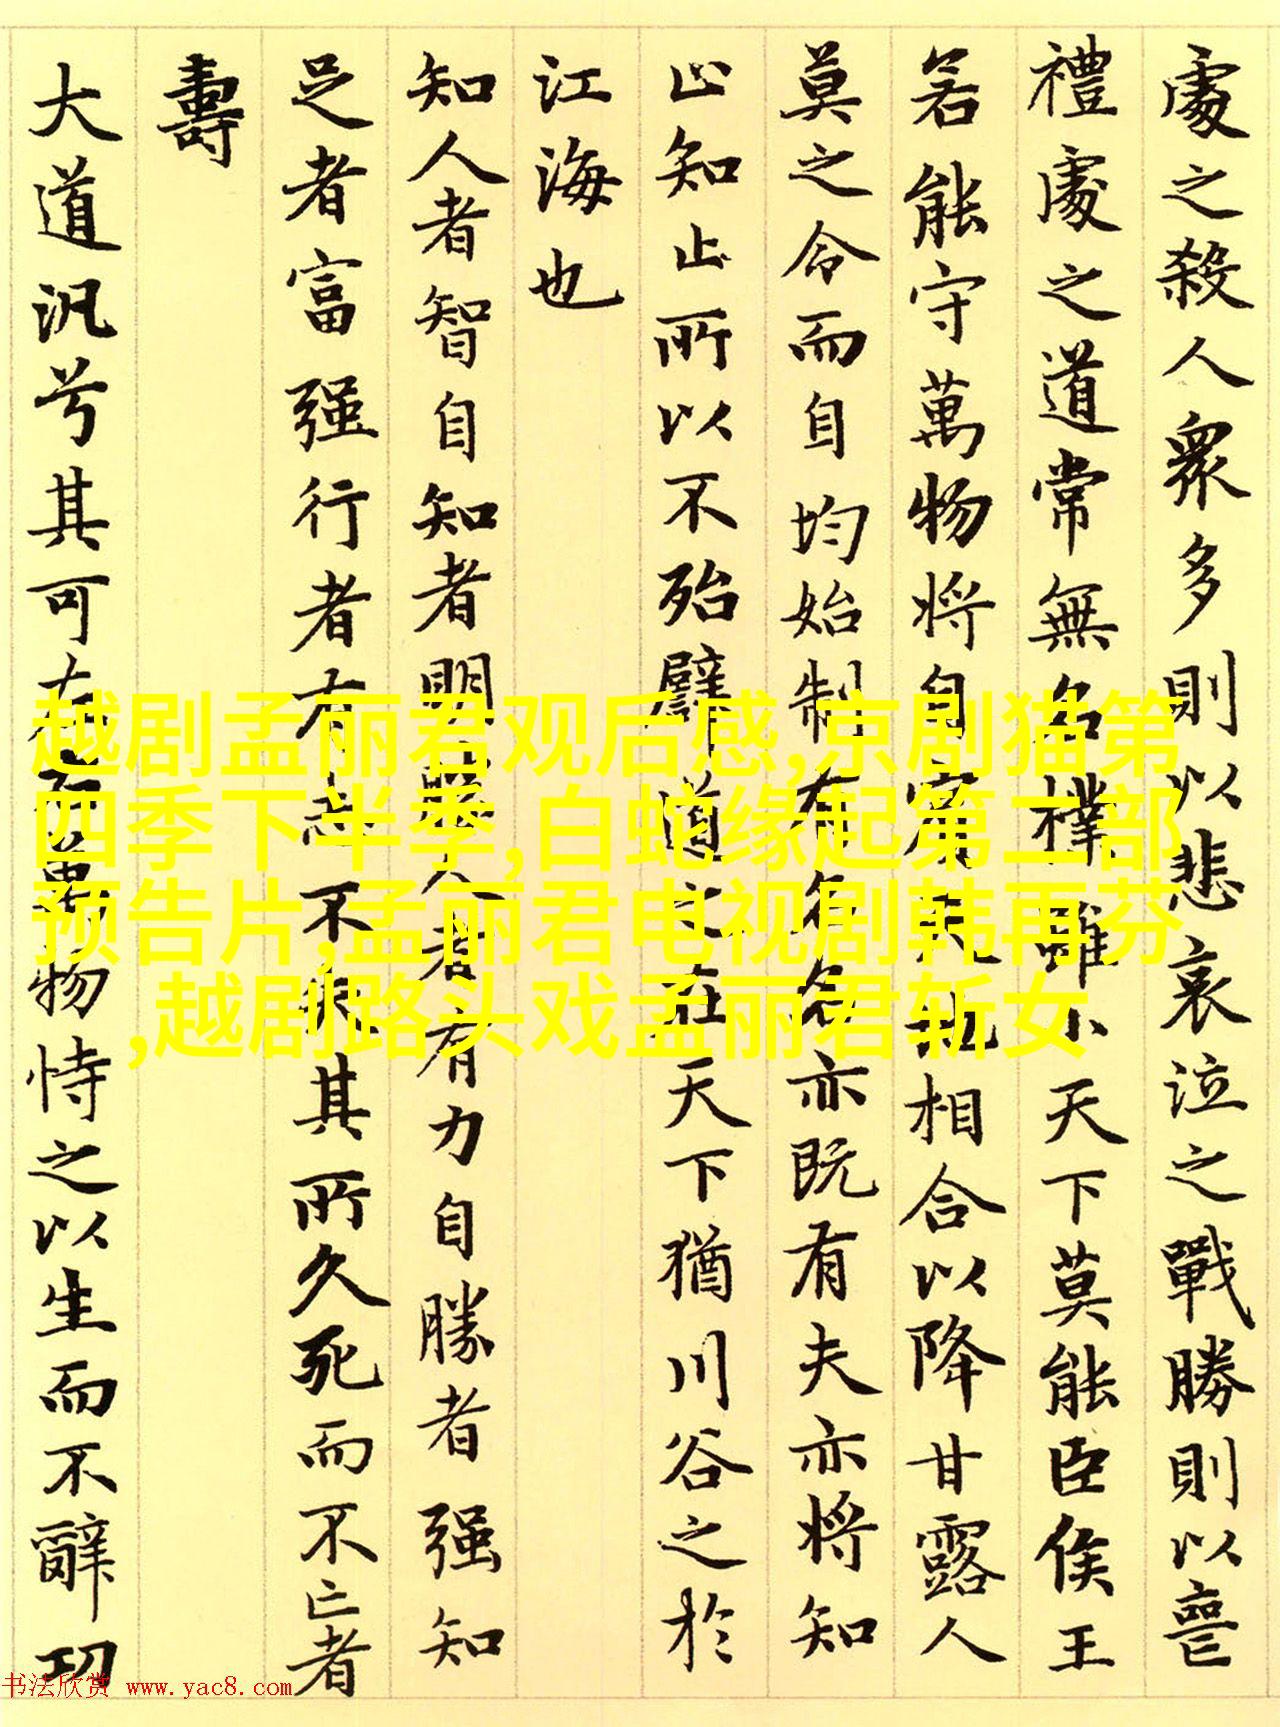 處之殺人衆多則以悲哀泣之戰勝則以喪
禮處之道常無名樸雖小天下莫能臣侯王
若能守萬物將自賓天地相合以降甘露人
莫之令而自均始制有名名亦既有夫亦將知
止知止所以不殆譬道之在天下猶川谷之於
江海也
知人者智自知者明勝人者有力自勝者强知
足者富强行者有志不失其所久死而不亡者
壽
大道汎兮其可左右萬物恃之以生而不辭功
越剧孟丽君观后感,京剧猫第
四季下半季,白蛇缘起第二部
预告片,孟丽君电视剧韩再芬
,越剧路头戏孟丽君斩女
书法欣赏 www.yac8.com